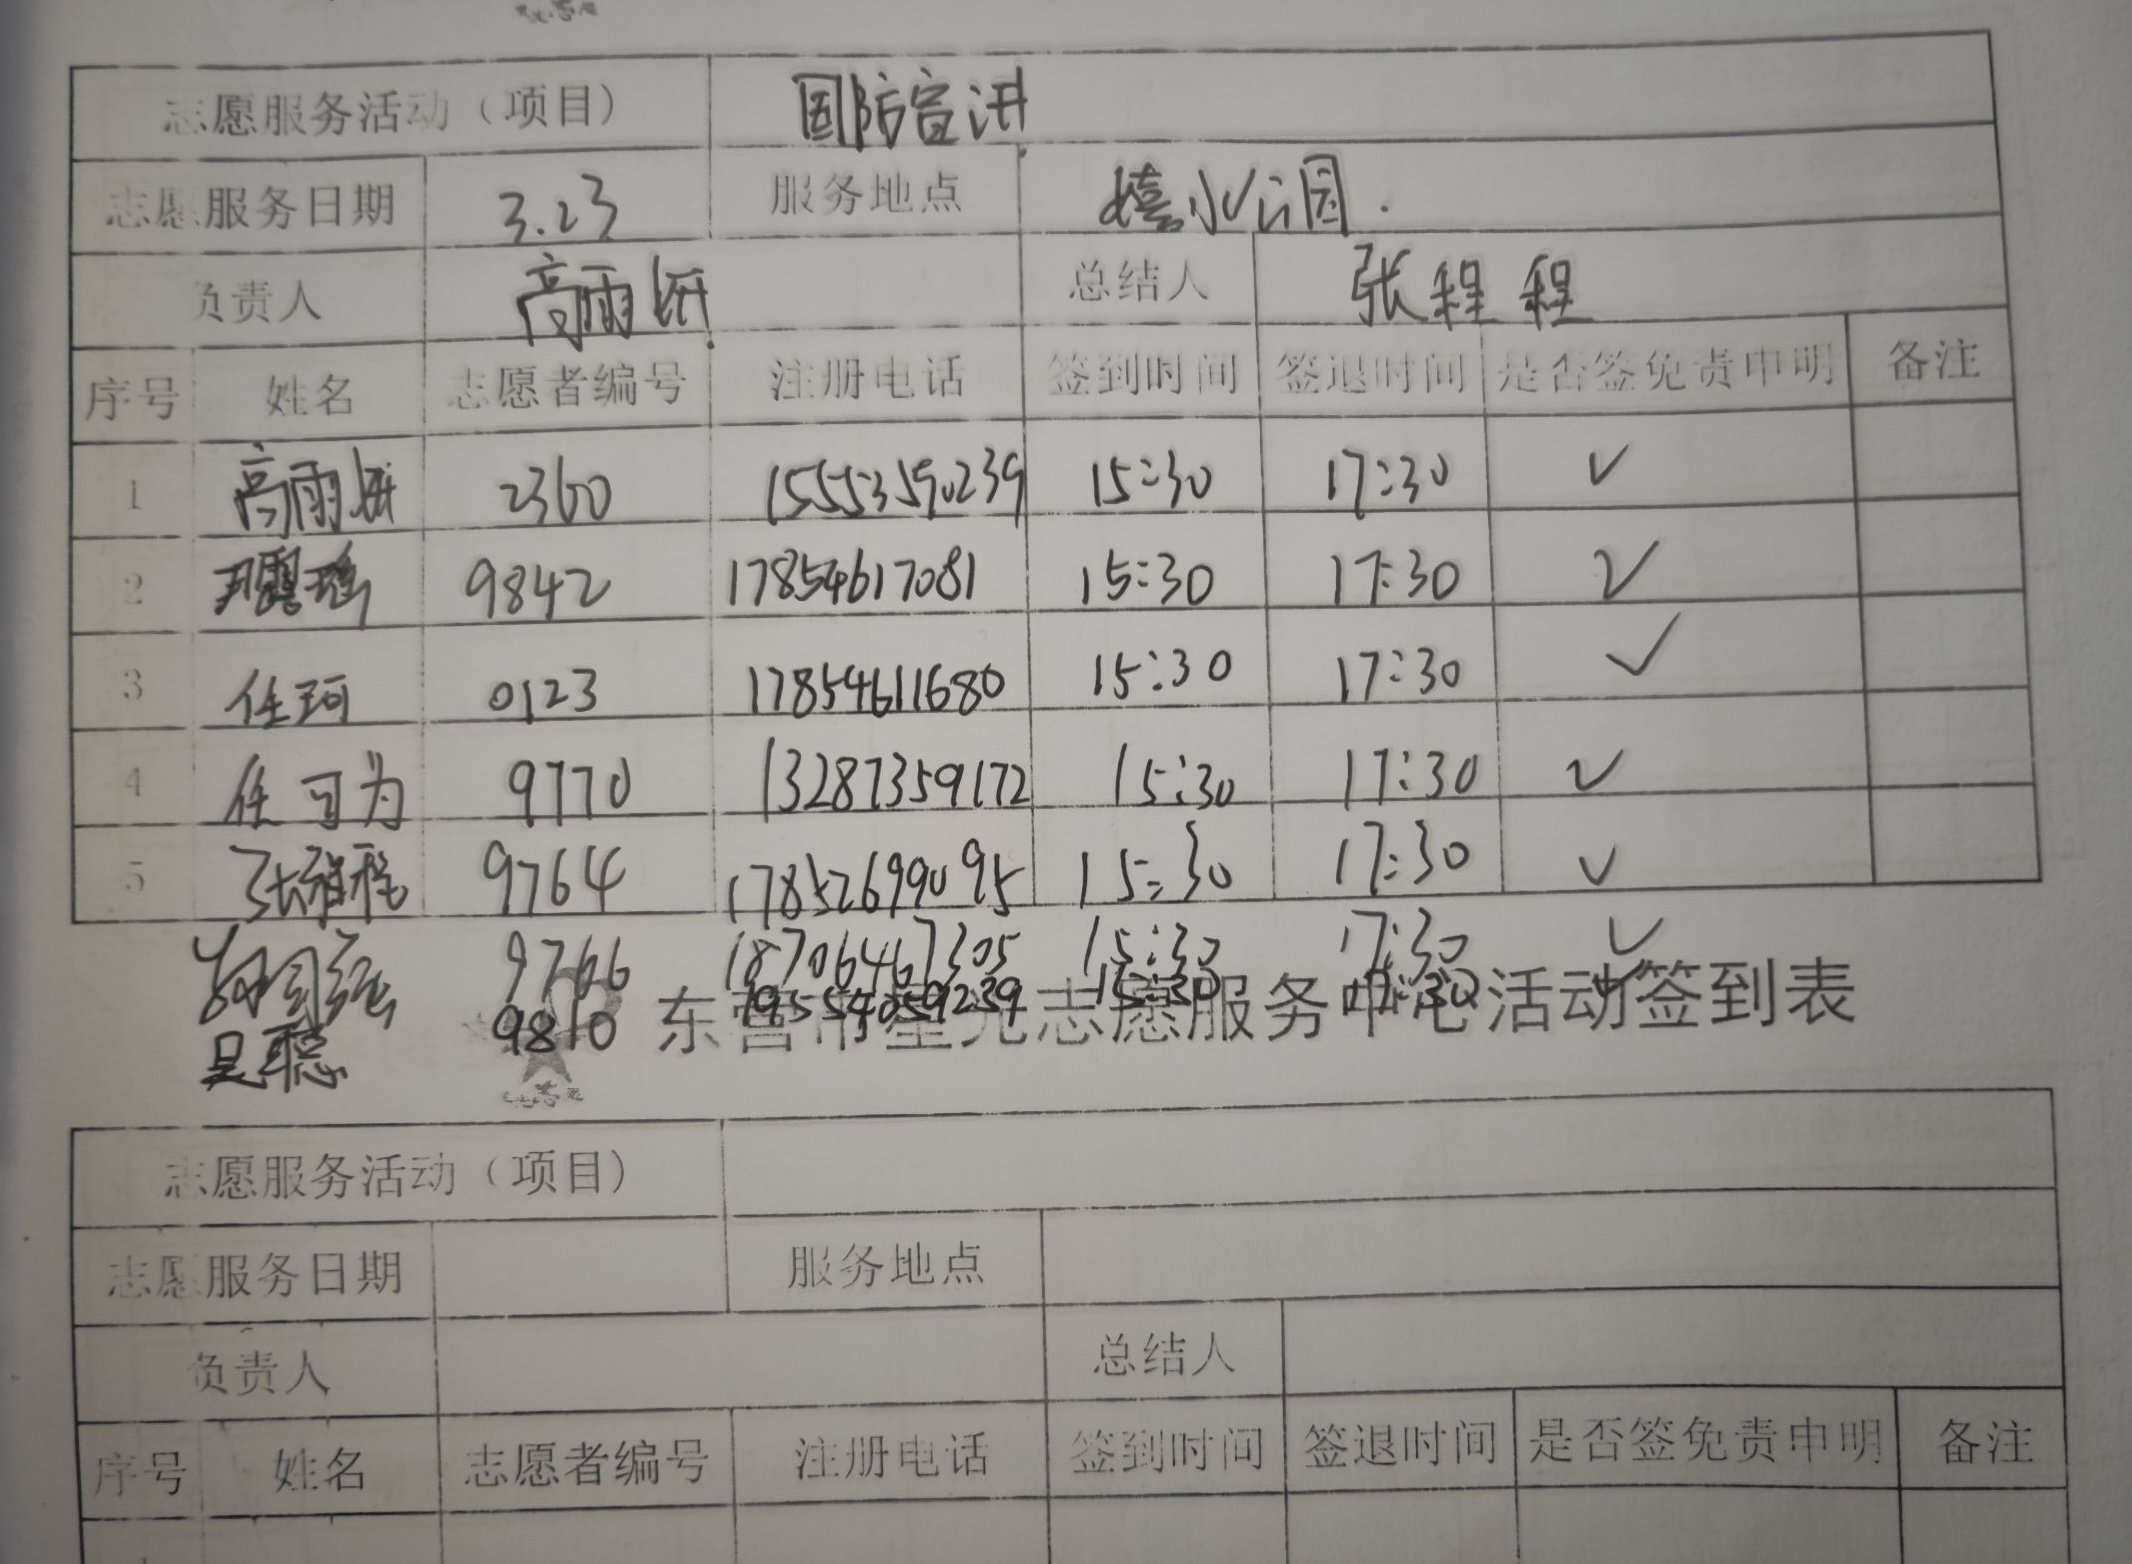 志愿服务活动（项目） 国防宣讲
志愿服务日期 3.23 服务地点 嬉水公园.
负责人 高雨妍 总结人 张程程
序号 姓名 志愿者编号 注册电话 签到时间 签退时间 是否签免责申明 备注
1 高雨妍 2360 15553590239 15:30 17:30 ✓
2 9842 17854617081 15:30 17:30 ✓
3 任珂 0123 17854611680 15:30 17:30 ✓
4 任可为 9770 13287359172 15:30 17:30 ✓
5 张程程 9764 17852699095 15:30 17:30 ✓
9766 18706467305 15:30 17:30 ✓
吴聪 9810 19554059239 15:30 17:30 ✓
东营市星光志愿服务中心活动签到表
志愿服务活动（项目）
志愿服务日期 服务地点
负责人 总结人
序号 姓名 志愿者编号 注册电话 签到时间 签退时间 是否签免责申明 备注